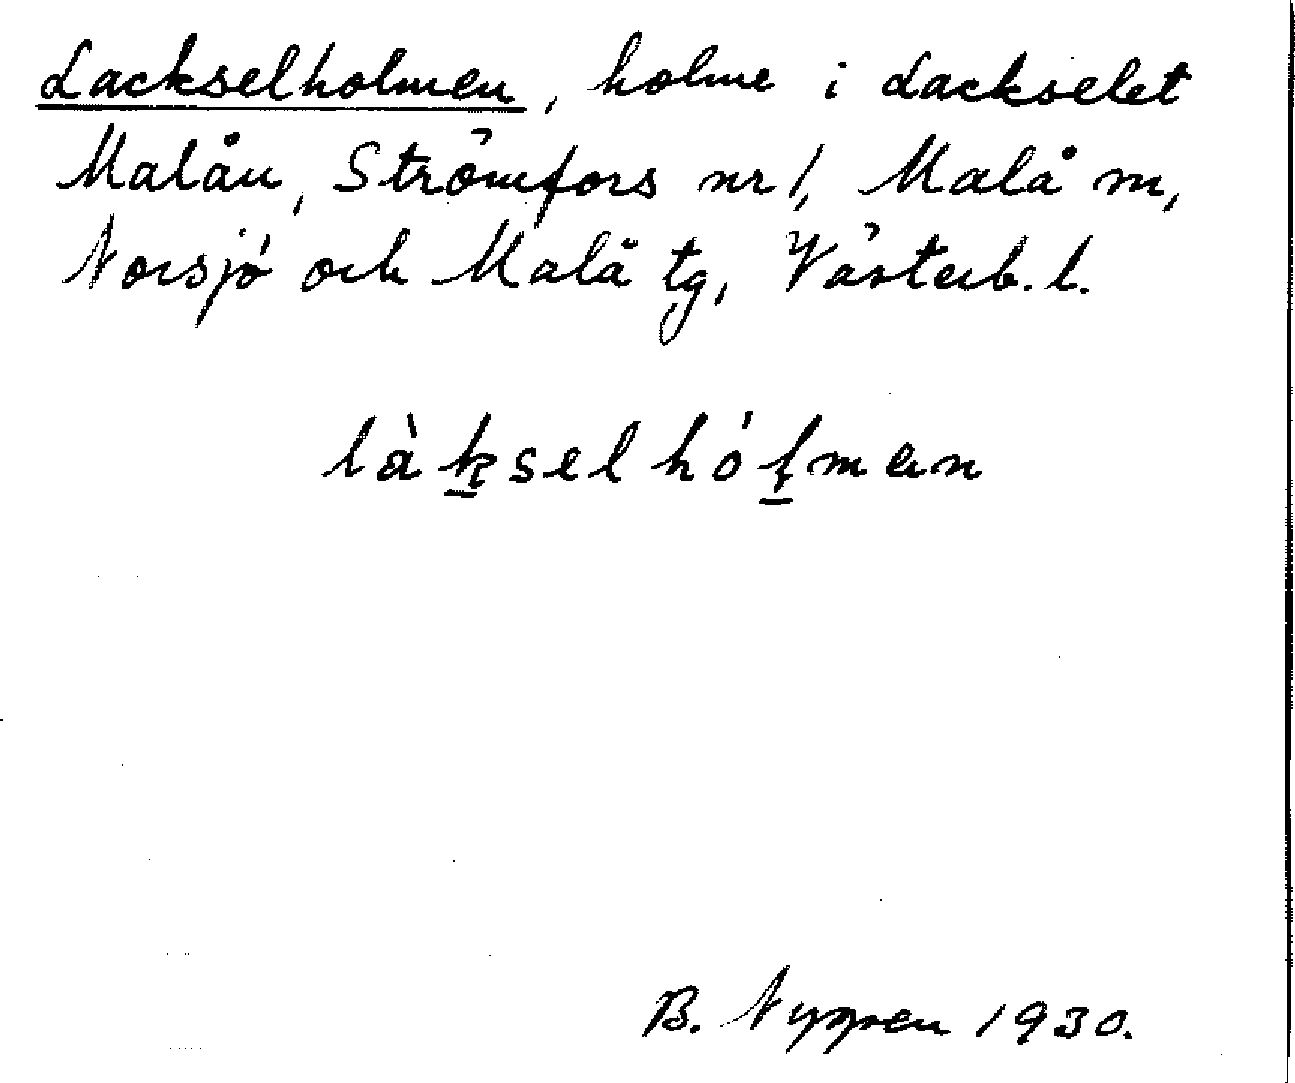 Lackselholmen, holme i Lackselet
Malån, Strömfors nr 1, Malå m,
Norsjö och Malå tg, Västerb. l.
làk̠selhól̠men
B. Nygren 1930.